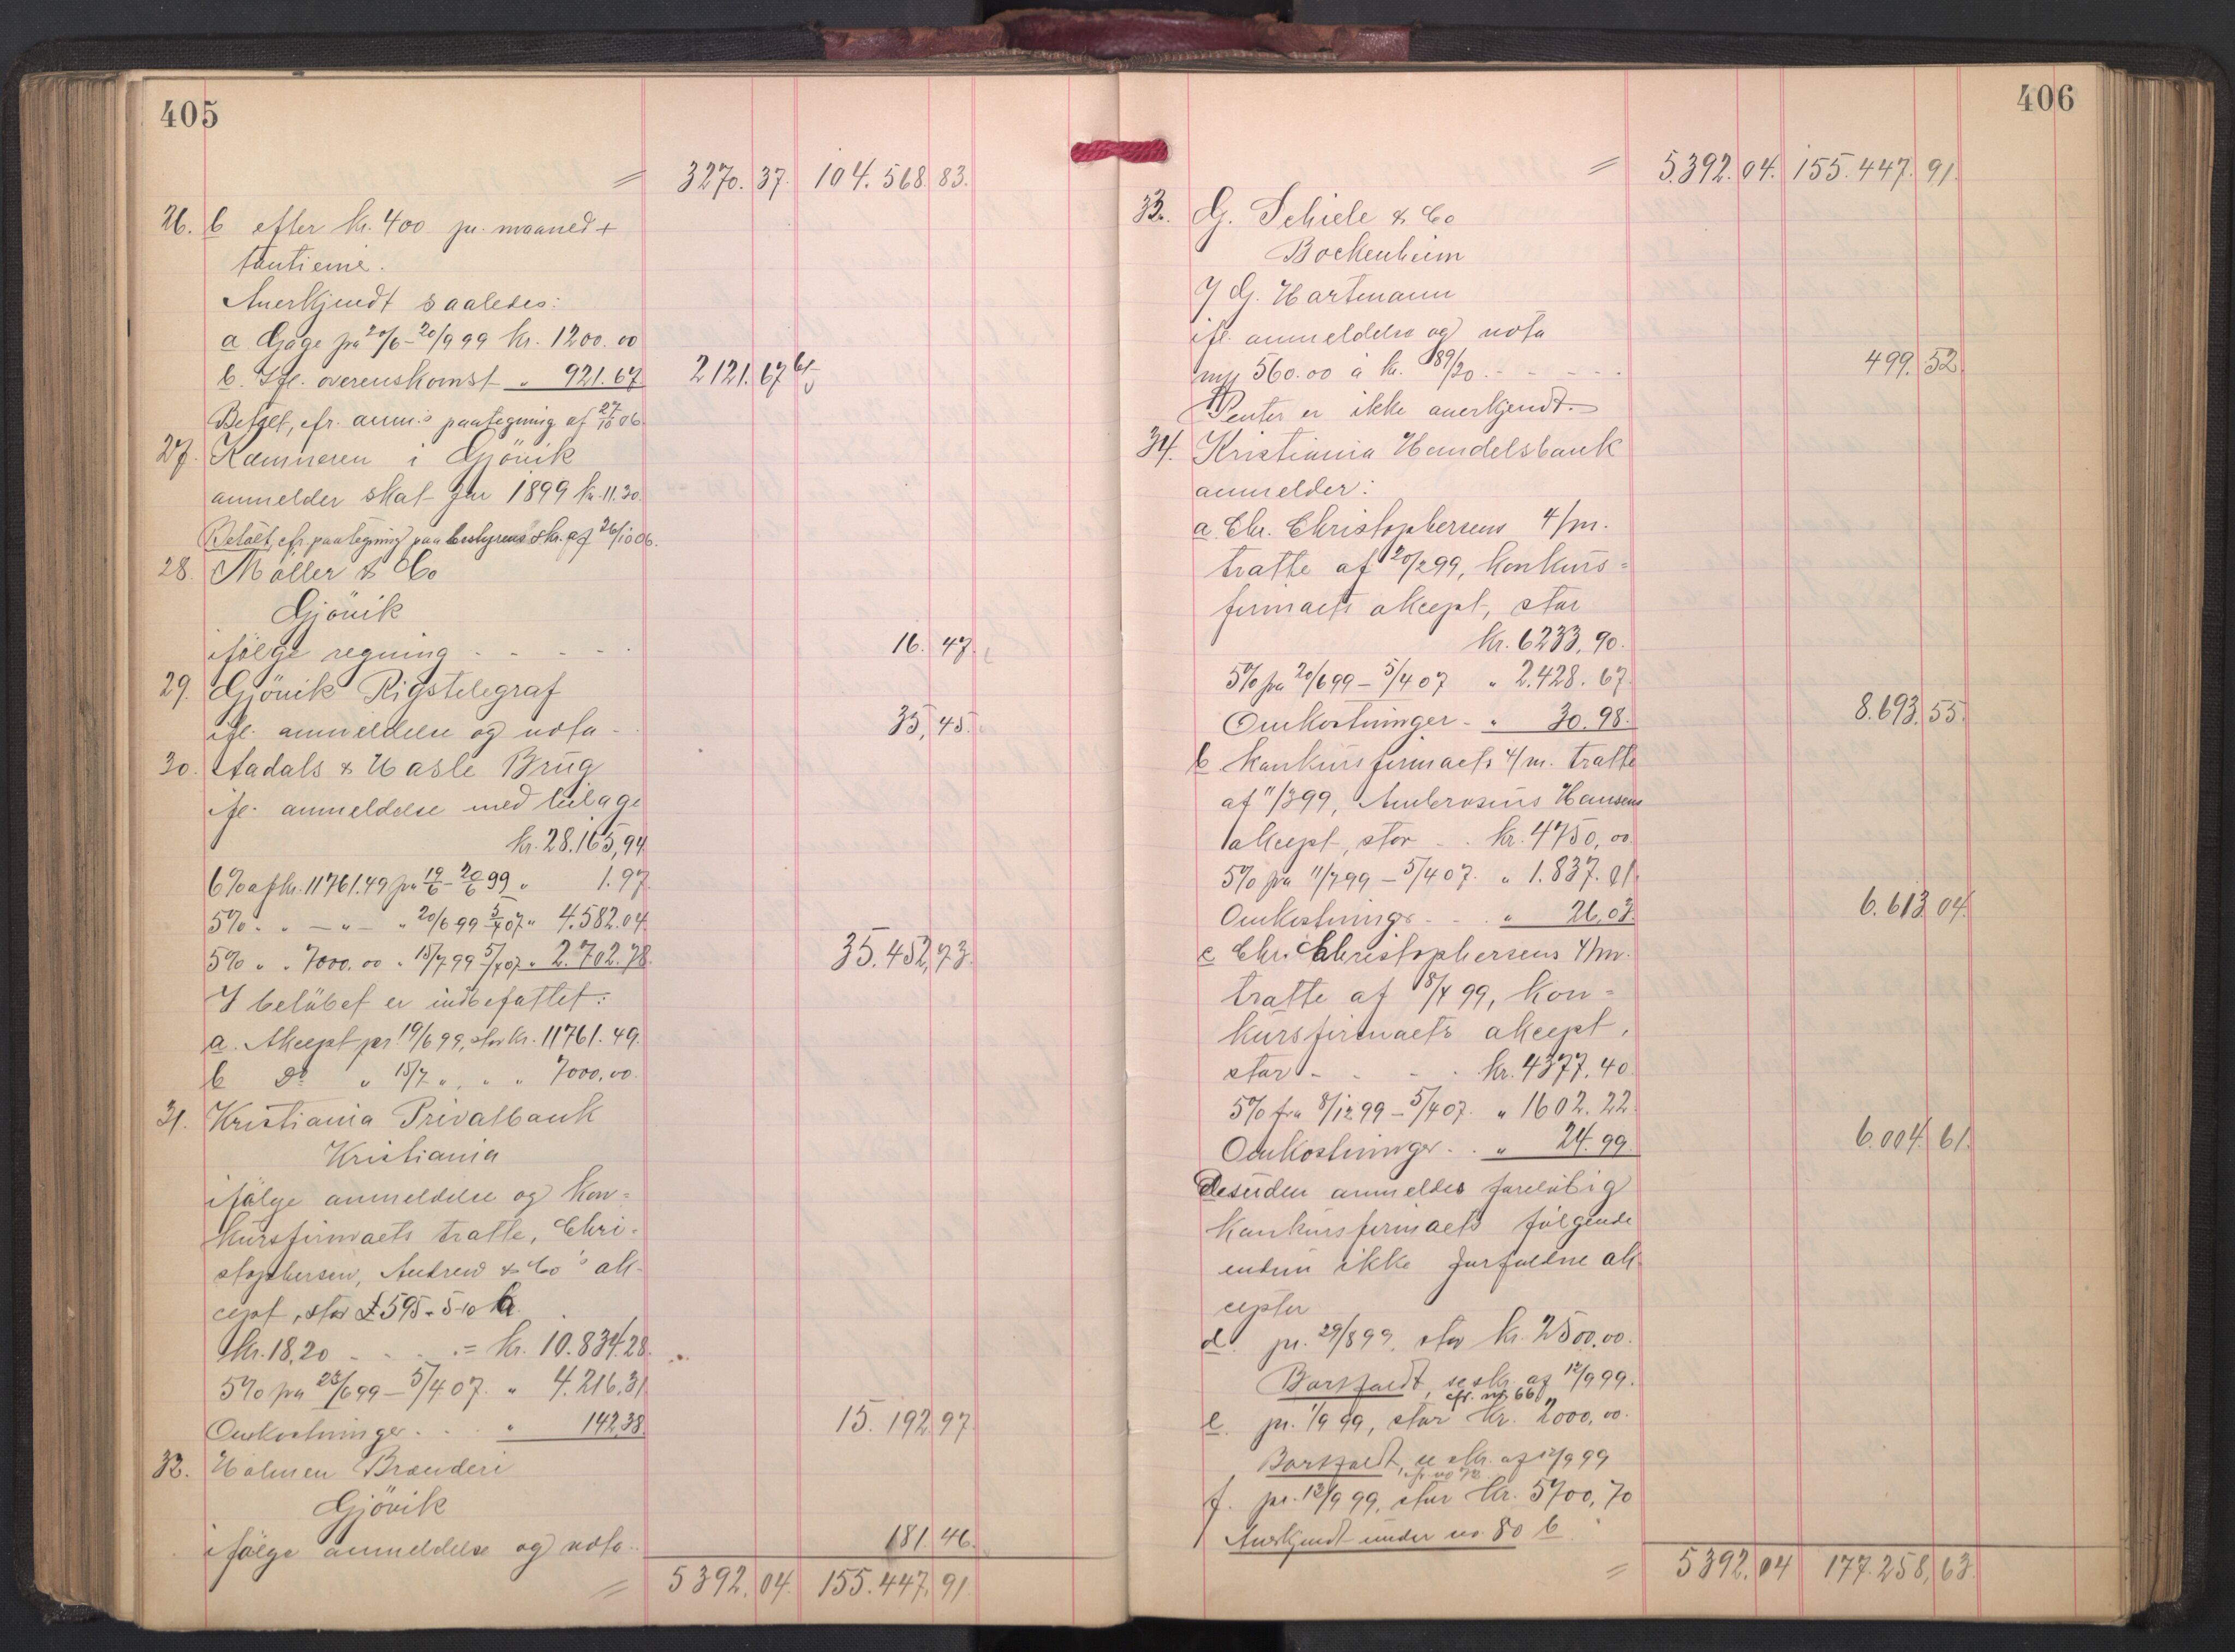 405
= 3270.37. 104.568.83.
26. b efter kr. 400 pr. maaned +
tantieme.
Anerkjendt saaledes:
a Gage fra 20/6-20/9 99 kr. 1200.00
b. Ifl. overenskomst " 921.67 2121.67
Betalt, cfr. anm.s paategning af 27/10 06.
27. Kæmneren i Gjövik
anmelder skat for 1899 kr. 11.30.
Betalt, cfr. paategning paa bestyrens skr. af 26/10 06.
28. Möller & Co
Gjövik
ifölge regning - - - - - 16.47.
29. Gjövik Rigstelegraf
ifl. anmeldelse og nota - 35,45.
30. Aadals & Hasle Brug
ifl. anmeldelse med bilage
kr. 28.165,94
6% af kr. 11761.49 fra 19/6-20/6 99 " 1.97.
5% " " — " — " 20/6 99 5/4 07 " 4.582.04.
5% " " 7000.00 " 15/7 99 5/4 07 " 2.702.78. 35.452,73.
I belöbet er indbefattet:
a. Akcept pr. 19/6 99, stor kr. 11761.49.
b Do " 15/7 " " " 7000,00.
31. Kristiania Privatbank
Kristiania
ifölge anmeldelse og kon=
kursfirmaets tratte, Chri-
stophersen, Andrew & Co's ak-
cept, stor £ 595-5-10 à
kr. 18,20 - . . . = kr. 10.834.28.
5% fra 23/6 99 - 5/4 07. " 4.216,31
Omkostninger . . . " 142,38. 15.192,97.
32. Holmen Brænderi
Gjövik
ifölge anmeldelse og nota.. 181.46.
= 5392.04. 155.447.91.
406
= 5.392.04. 155.447.91.
33. G. Schiele & Co
Bockenheim
v/ G. Hartmann
ifl. anmeldelse og nota
mk 560.00 à kr. 89/20 . - - - - . 499.52.
Renter er ikke anerkjendt.
34. Kristiania Handelsbank
anmelder:
a. Chr. Christophersens 4/m.
tratte af 20/2 99, konkurs=
firmaets akcept, stor
kr. 6233,90.
5% fra 20/6 99 - 5/4 07 " 2.428.67.
Omkostninger - " 30.98. 8.693.55.
b. konkursfirmaets 4/m. tratte
af 11/3 99, Ambrosius Hansens
akcept, stor - . kr. 4750,00.
5% fra 11/7 99 - 5/4 07. " 1.837.01.
Omkostninger - - . " 26,03. 6.613.04.
c Chr. Christophersens 4/m.
tratte af 8/4 99, kon=
kursfirmaets akcept,
stor - - - . kr. 4377.40
5% fra 8/12 99 - 5/4 07. " 1602.22.
Omkostninger . . " 24.99. 6.004.61.
Desuden anmeldes foreløbig
konkursfirmaets fölgende
endnu ikke forfaldne ak
cepter
d. pr. 29/8 99, stor kr. 2500.00.
Bortfaldt, se skr. af 12/9 99.
cfr. no 66
e. pr. 1/9 99, stor kr. 2000,00.
Bortfaldt, se skr. af 12/9 99
cfr. no 72
f. pr. 12/9 99, stor kr. 5700,70
Anerkjendt under no. 80 b.
= 5392.04 177.258,63.